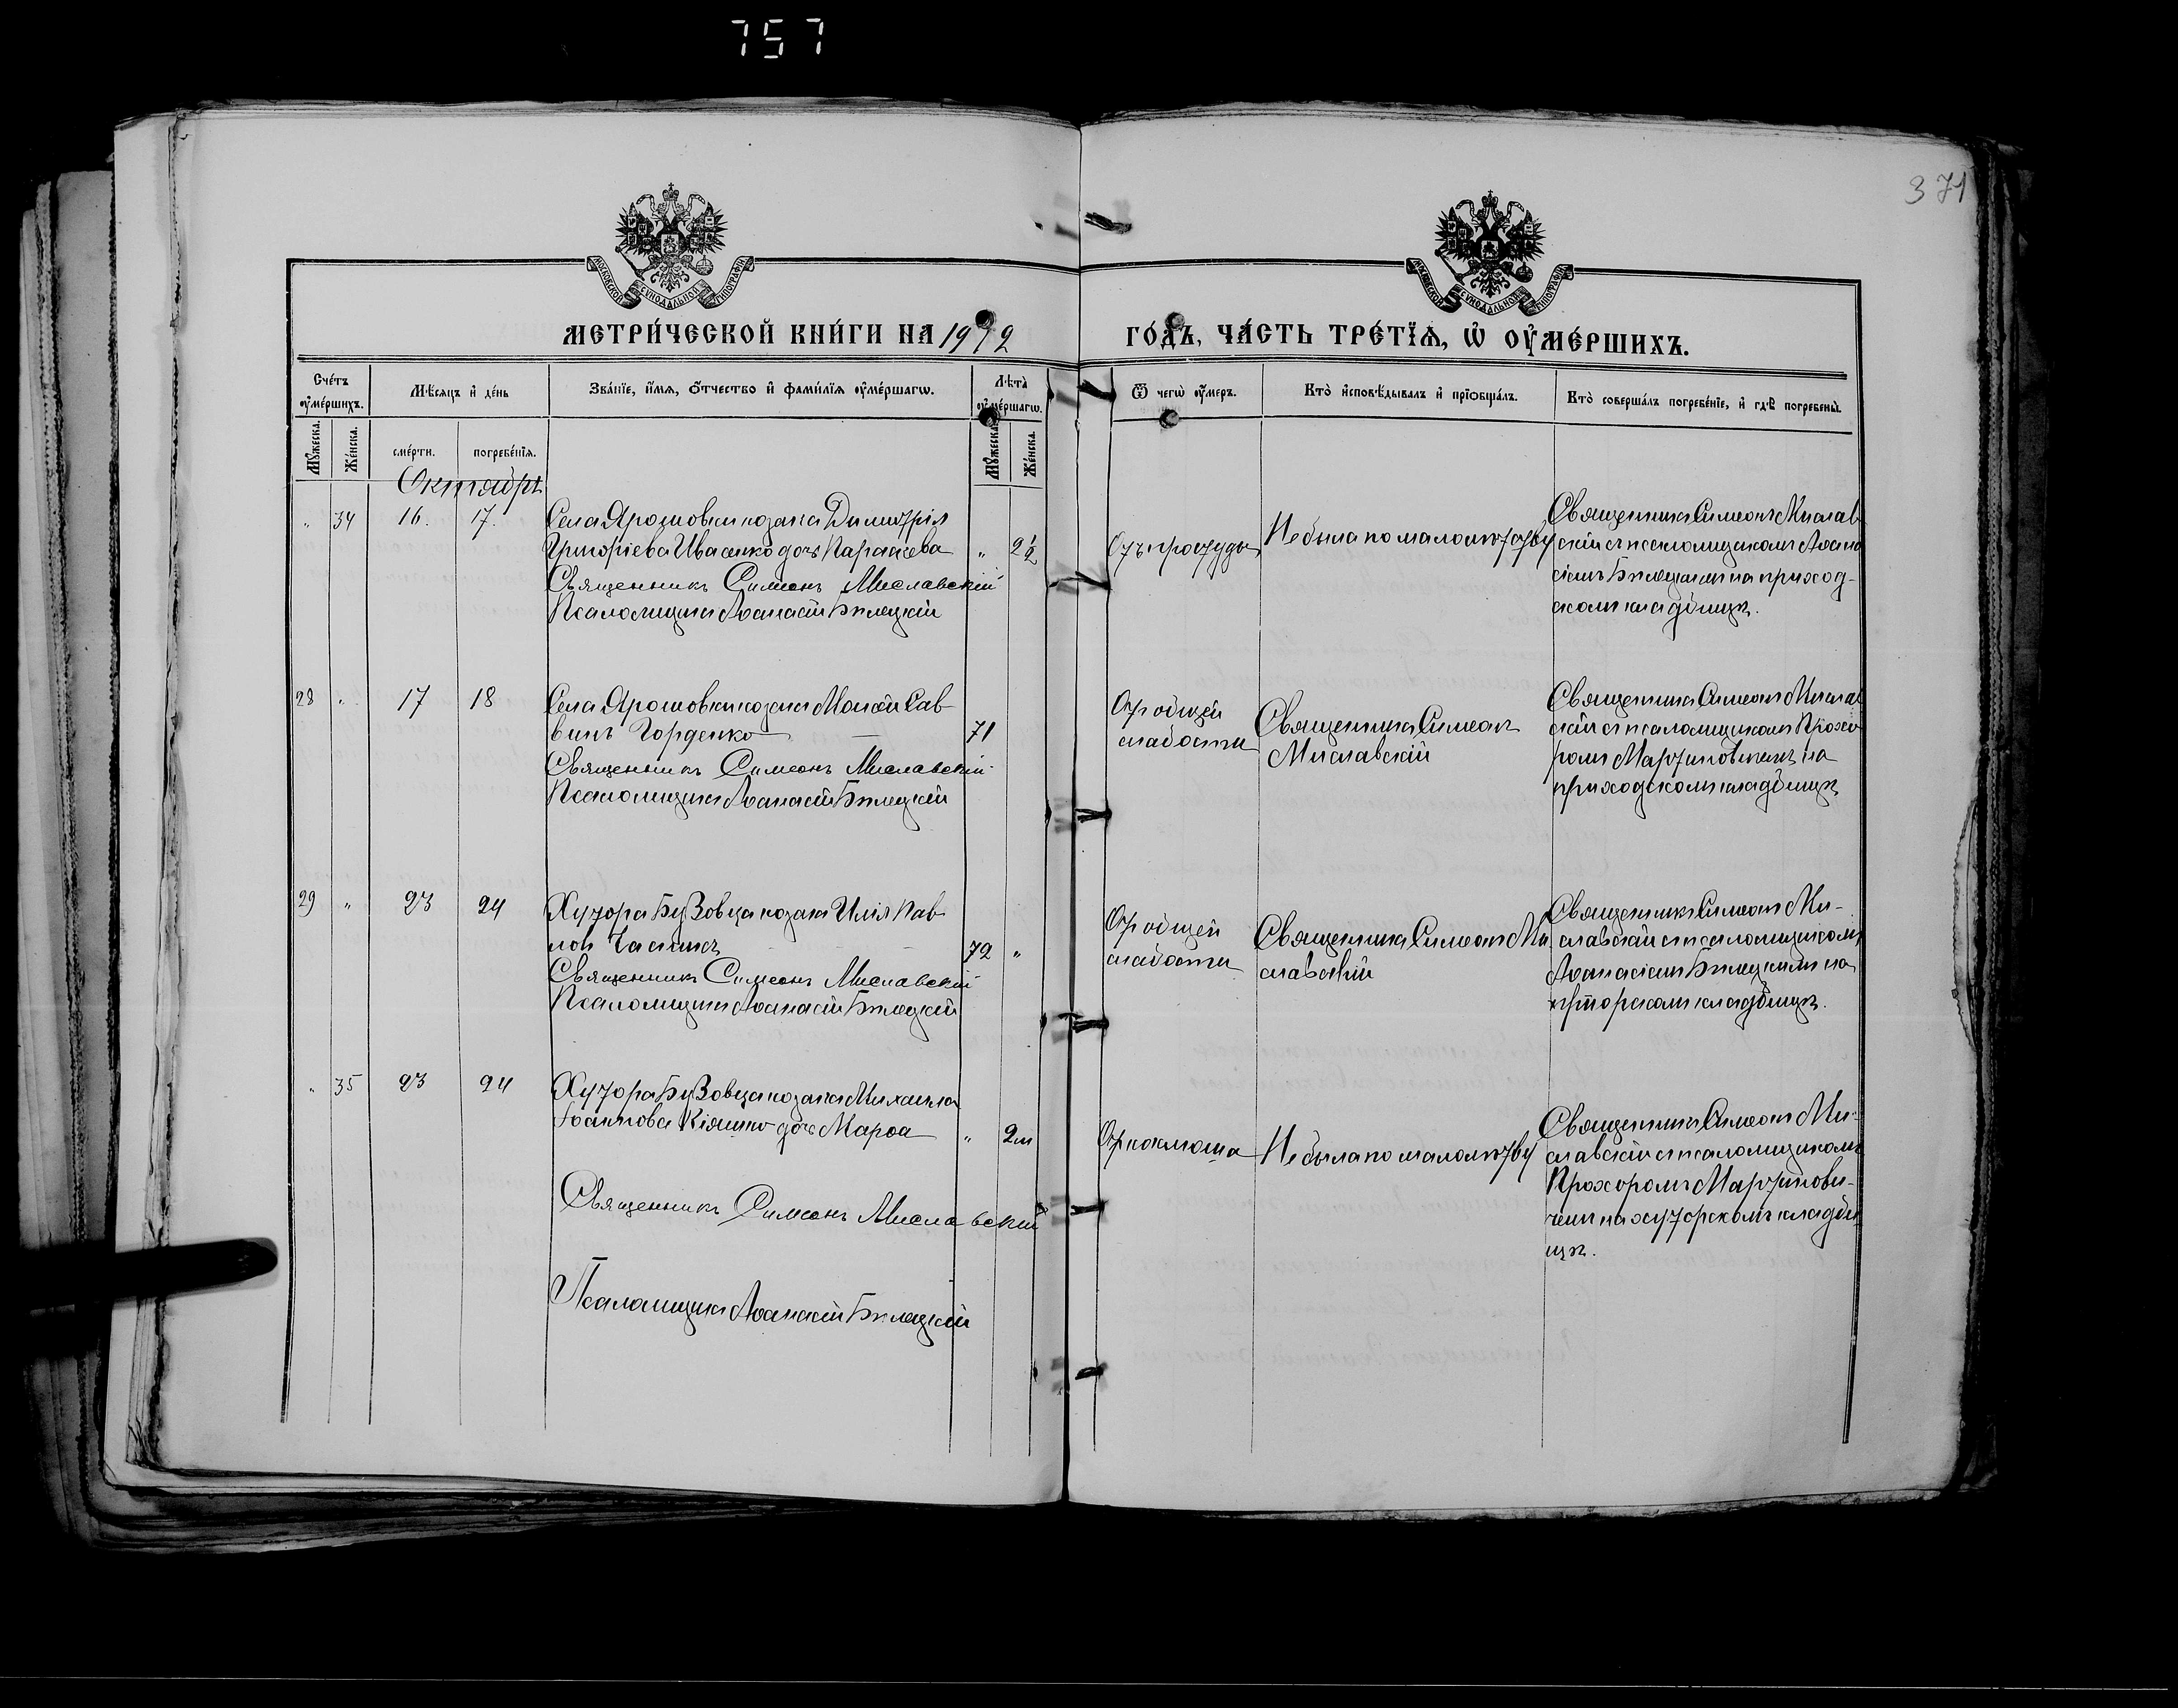 757
371
МОСКОВСКОЙ СѴНОДАЛЬНОЙ ТИПОГРАФІИ
МОСКОВСКОЙ СѴНОДАЛЬНОЙ ТИПОГРАФІИ
МЕТРИ́ЧЕСКОЙ КНИ́ГИ НА 1912
ГО́ДЪ, ЧА́СТЬ ТРЕ́ТЇѦ, Ѡ҆ ОУ҆МЕ́РШИХЪ.
Сче́тъ оу҆ме́ршихъ.
Мѣ́сяцъ и҆ де́нь
Зва́нїе, и҆́мя, ѻ҆́тчество и҆ фами́лїя оу҆ме́ршагѡ.
Лѣ́та оу҆ме́ршагѡ.
Ѿ чегѡ̀ оу҆́меръ.
Кто̀ и҆сповѣ́дывалъ и҆ прїѻбща́лъ.
Кто̀ соверша́лъ погребе́нїе, и҆ гдѣ̀ погребены̀.
Мꙋ́жеска.
Же́нска.
сме́рти.
погребе́нїѧ.
Мꙋ́жеска.
Же́нска.
Октябрь
" 34 16. 17.
Села Ярошовки козака Димитрія
Григоріева Ивасенко дочь Параскева " 2½
Священникъ Симеонъ Миславскій
Псаломщикъ Аѳанасій Бѣлецкій
Отъ простуды
Не была по малолѣтству
Священникъ Симеонъ Мислав
скій съ псаломщикомъ Аѳана
сіемъ Бѣлецкимъ на приход-
скомъ кладбищѣ.
28 " 17 18
Села Ярошовки козакъ Моисей Сав
винъ Горденко 71
Священникъ Симеонъ Миславскій
Псаломщикъ Аѳанасій Бѣлецкій
От общей
слабости
Священникъ Симеонъ
Миславскій
Священникъ Симеонъ Мислав
скій съ псаломщикомъ Прохо
ромъ Мартиновичемъ на
приходскомъ кладбищѣ
29 " 23 24
Хутора БуЗовца козакъ Илія Пав
лов 72 "
Священникъ Симеонъ Миславскій
Псаломщикъ Аѳанасій Бѣлецкій
От общей
слабости
Священникъ Симеонъ Ми
славскій
Священникъ Симеонъ Ми-
славскій съ псаломщикомъ
Аѳанасіемъ Бѣлецкимъ на
хуторскомъ кладбищѣ.
" 35 23 24
Хутора БуЗовца козака Михаила
Іоаннова Кіяшко дочь Марѳа " 2м
Священникъ Симеонъ Миславскій
Псаломщикъ Аѳанасій Бѣлецкій
От коклюша
Не была по малолѣтству
Священникъ Симеонъ Ми-
славскій съ псаломщикомъ
Прохоромъ Мартинови-
чемъ на хуторскомъ кладби
щѣ.